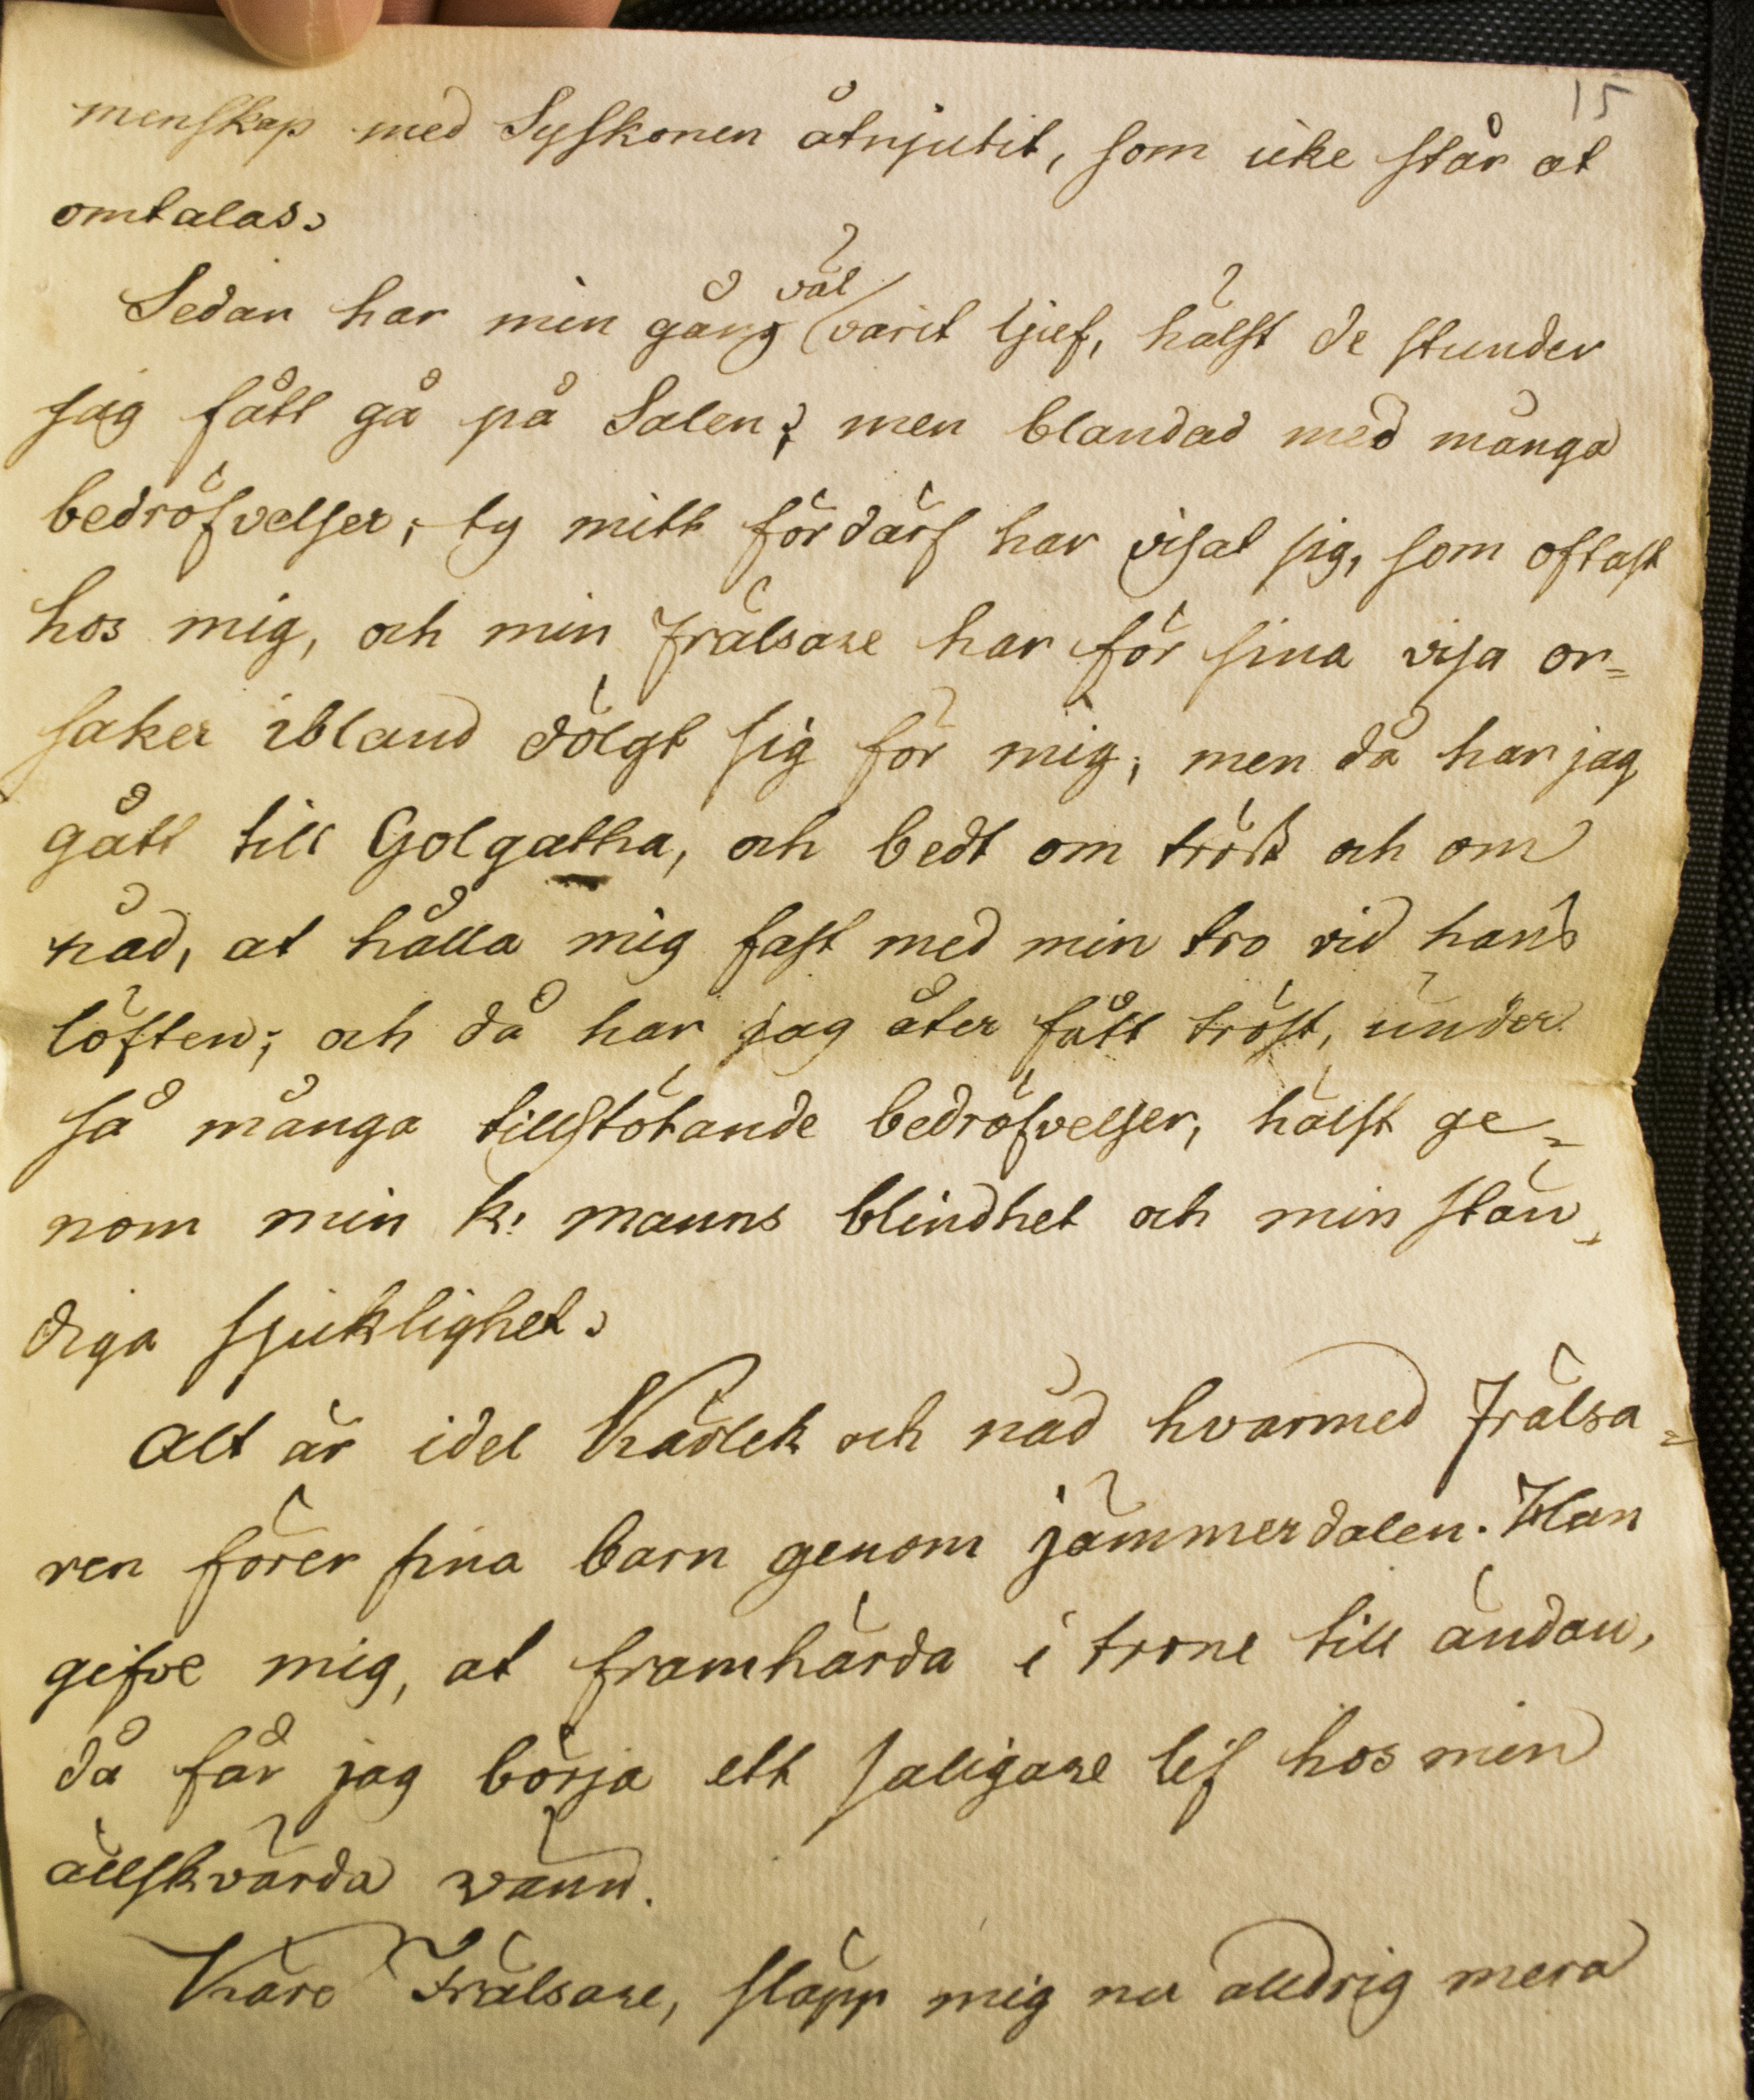 15
menskap med Syskonen åtnjutit, som icke står at
omtalas.
Sedan har min gång väl varit ljuf, hälst de stunder
jag fått gå på Salen; men blandad med många
bedröfvelser; ty mitt fördärf har visat sig, som oftast
hos mig, och min Frälsare har för sina visa or=
saker ibland dölgt sig för mig; men då har jag
gått till Golgatha, och bedt om tröst och om
nåd, at hålla mig fast med min tro vid hans
löften; och då har jag åter fått tröst, under
så många tillstötande bedröfvelser, hälst ge=
nom min k: manns blindhet och min stän=
diga sjuklighet.
Alt är idel Kärlek och nåd hvarmed Frälsa=
ren förer sina barn genom jämmerdalen. Han
gifve mig, at framhärda i trone till ändan,
då får jag börja ett saligare lif hos min
älskvärda vänn.
Käre Frälsare, släpp mig nu alldrig mera